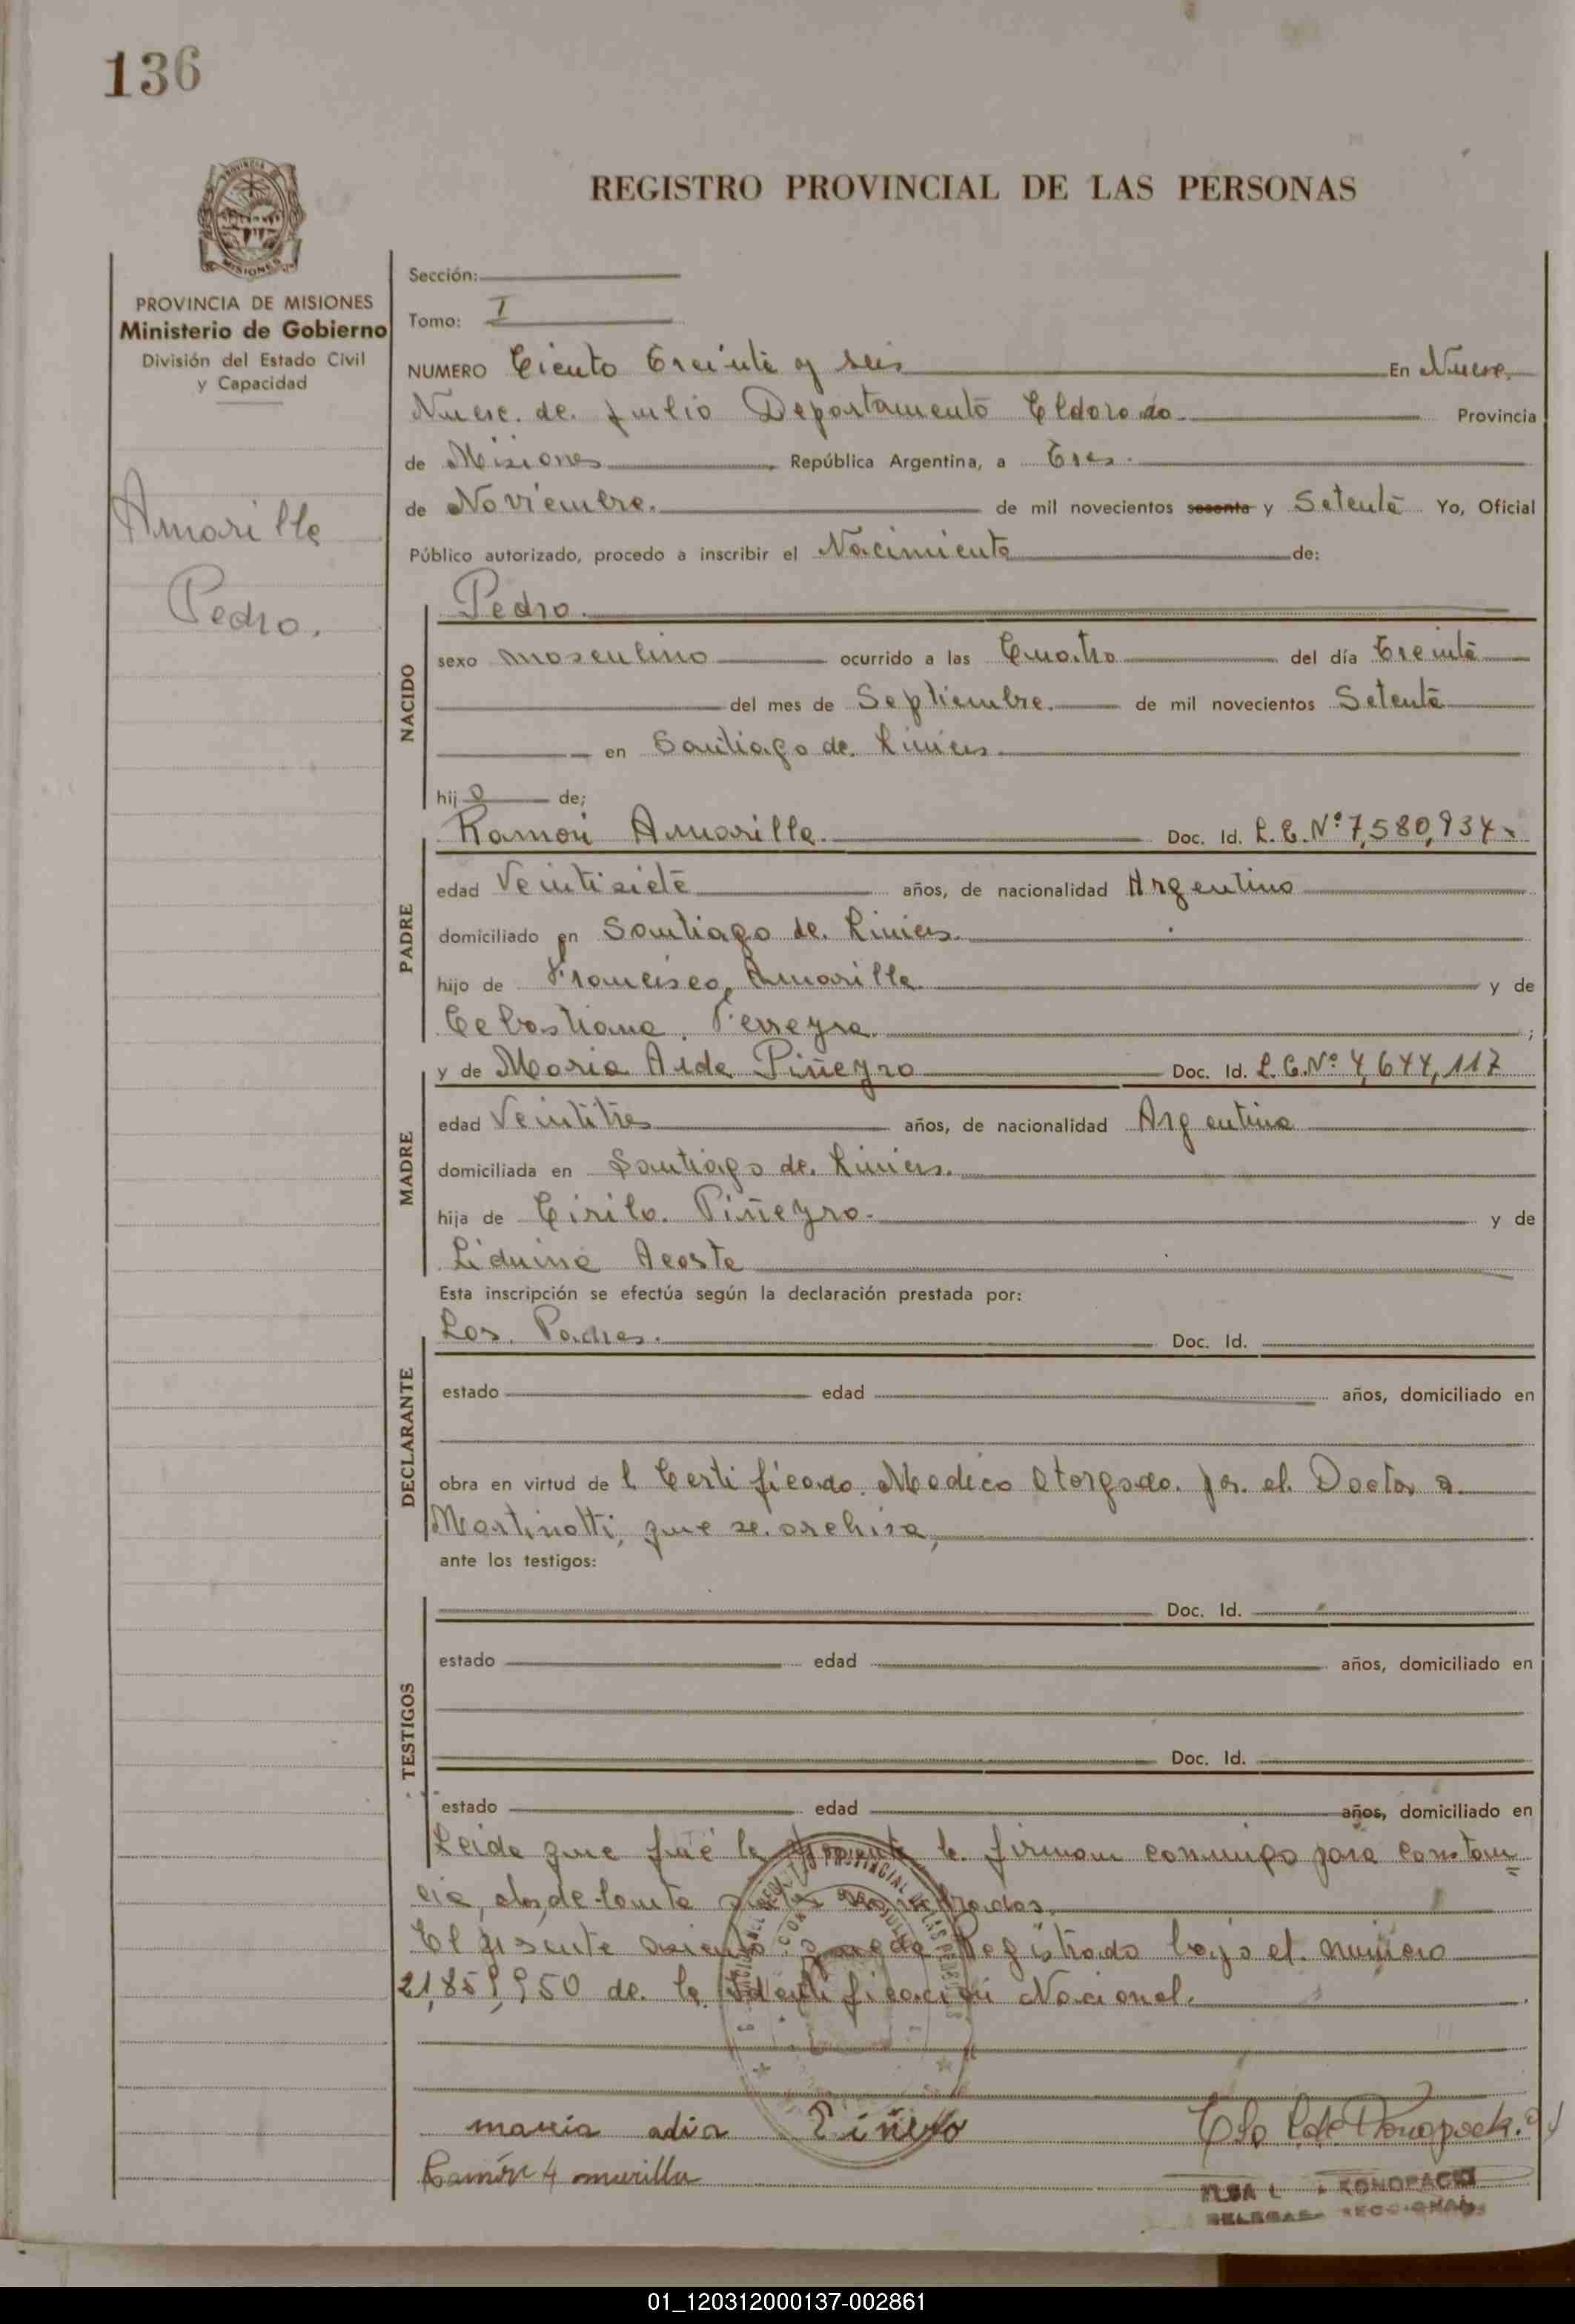 136
REGISTRO PROVINCIAL DE LAS PERSONAS
MISIONES
PROVINCIA DE MISIONES
Ministerio de Gobierno
División del Estado Civil
y Capacidad
Amarilla
Pedro.
Sección:
Tomo: I
NUMERO Ciento Treinta y seis En Nueve
Nueve de Julio Departamento Eldorado Provincia
de Misiones República Argentina, a Tres
de Noviembre. de mil novecientos sesenta y Setenta Yo, Oficial
Público autorizado, procedo a inscribir el Nacimiento de:
NACIDO
Pedro.
sexo masculino ocurrido a las Cuatro del día Treinta
del mes de Septiembre. de mil novecientos Setenta
en Santiago de Liniers
hij o de;
PADRE
Ramon Amarilla. Doc. Id. L.E. Nº 7,580,934
edad Veintisiete años, de nacionalidad Argentino
domiciliado en Santiago de Liniers.
hijo de Francisco Amarilla y de
Cebastiana Ferreyra ;
MADRE
y de Maria Aida Piñeyro Doc. Id. L.C. Nº 4,644,117
edad Veintitres años, de nacionalidad Argentina
domiciliada en Santiago de Liniers.
hija de Cirilo Piñeyro y de
Liduina Acosta
Esta inscripción se efectúa según la declaración prestada por:
DECLARANTE
Los Padres. Doc. Id.
estado edad años, domiciliado en
obra en virtud de l Certificado Medico Otorgado por el Doctor a.
Martinotti, que se archiva,
ante los testigos:
TESTIGOS
Doc. Id.
estado edad años, domiciliado en
Doc. Id.
estado edad años, domiciliado en
Leida que fué la presente la firman conmigo para constan
cia, los declarantes nombrados.
El presente asiento queda Registrado bajo el numero
21,859,950 de la Identificación Nacional.
maria adia Piñeyro
Ramón Amarilla
KONOPACKI
01_120312000137-002861